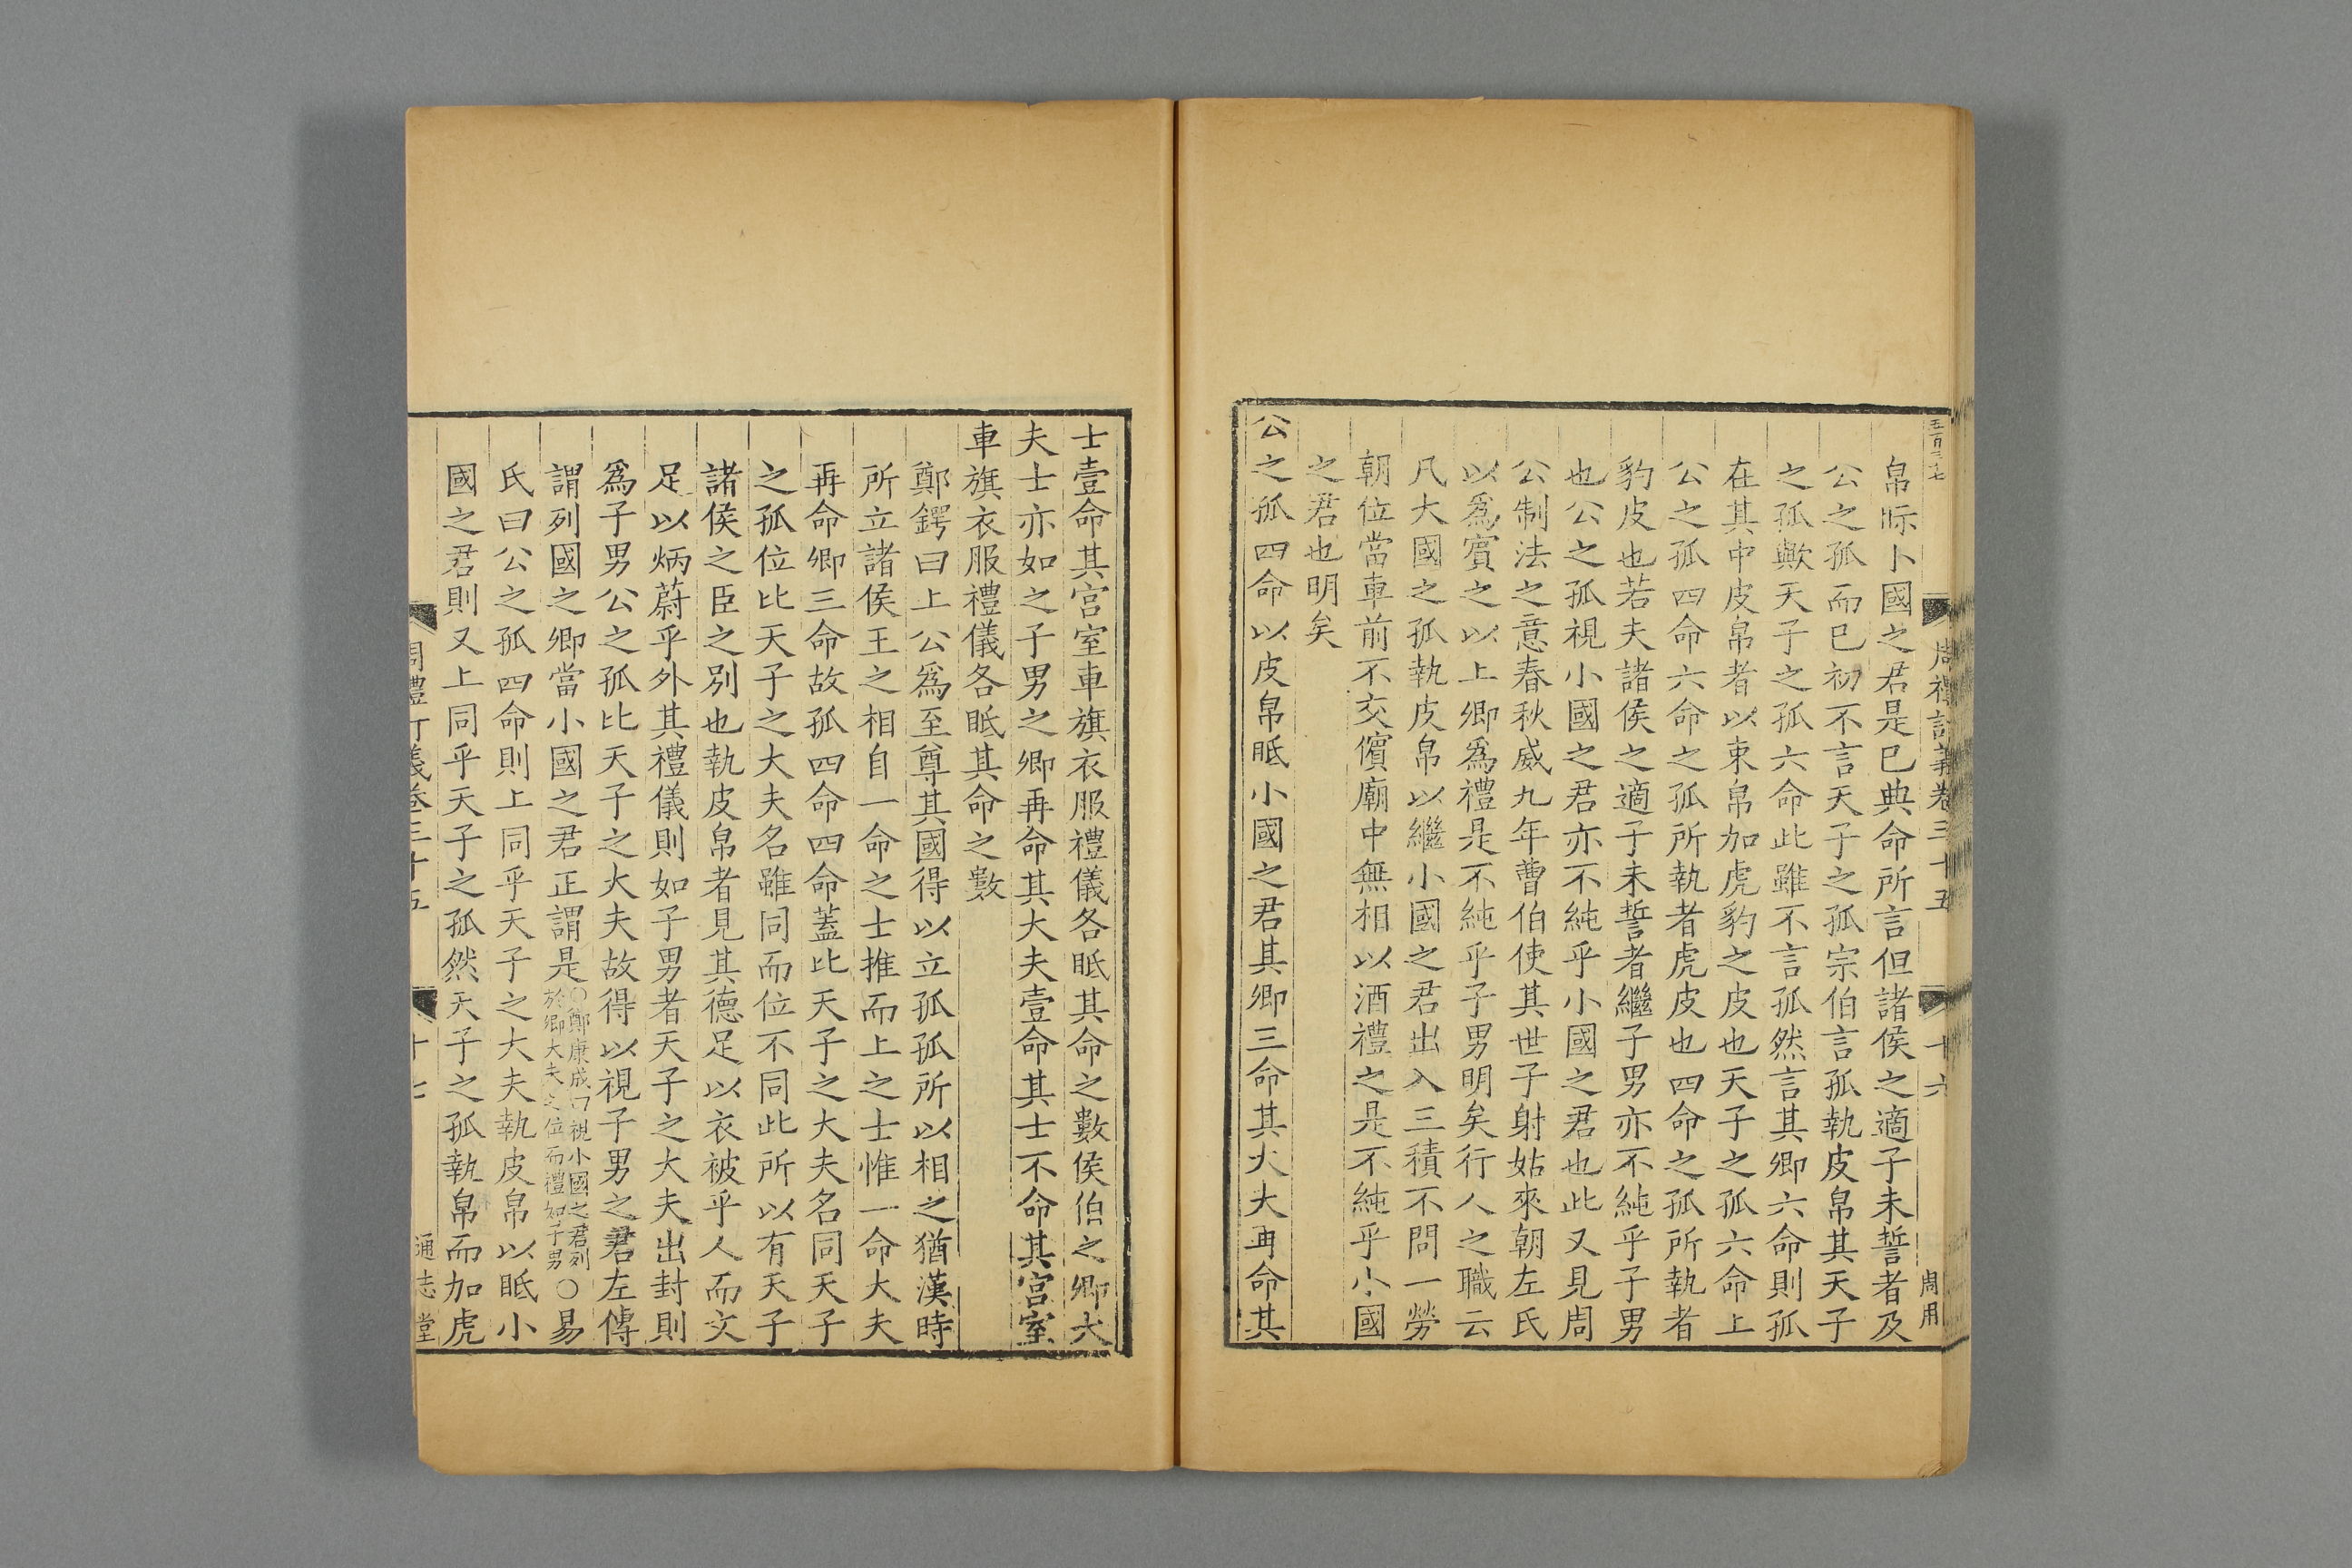 五百三七
周禮訂義卷三十五
十六
周用
帛眡小國之君是已典命所言但諸侯之適子未誓者及
公之孤而已初不言天子之孤宗伯言孤執皮帛其天子
之孤歟天子之孤六命此雖不言孤然言其卿六命則孤
在其中皮帛者以束帛加虎豹之皮也天子之孤六命上
公之孤四命六命之孤所執者虎皮也四命之孤所執者
豹皮也若夫諸侯之適子未誓者繼子男亦不純乎子男
也公之孤視小國之君亦不純乎小國之君也此又見周
公制法之意春秋威九年曹伯使其世子射姑來朝左氏
以爲賓之以上卿爲禮是不純乎子男明矣行人之職云
凡大國之孤執皮帛以繼小國之君出入三積不問一勞
朝位當車前不交儐廟中無相以酒禮之是不純乎小國
之君也明矣
公之孤四命以皮帛眡小國之君其卿三命其大夫再命其
士壹命其宮室車旗衣服禮儀各眡其命之數侯伯之卿大
夫士亦如之子男之卿再命其大夫壹命其士不命其宮室
車旗衣服禮儀各眡其命之數
鄭鍔曰上公爲至尊其國得以立孤孤所以相之猶漢時
所立諸侯王之相自一命之士推而上之士惟一命大夫
再命卿三命故孤四命四命蓋比天子之大夫名同天子
之孤位比天子之大夫名雖同而位不同此所以有天子
諸侯之臣之別也執皮帛者見其德足以衣被乎人而文
足以炳蔚乎外其禮儀則如子男者天子之大夫出封則
爲子男公之孤比天子之大夫故得以視子男之君左傳
謂列國之卿當小國之君正謂是○鄭康成曰視小國之君列於卿大夫之位而禮如子男○易
氏曰公之孤四命則上同乎天子之大夫執皮帛以眡小
國之君則又上同乎天子之孤然天子之孤執帛而加虎
周禮訂義卷三十五
十七
通志堂